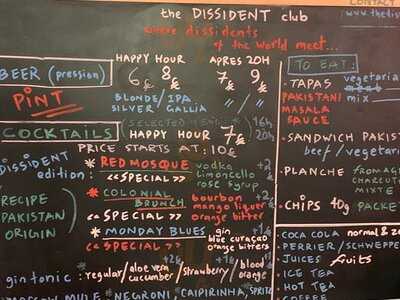 CONTACT
the DISSIDENT club
www.thedis
where dissidents
of the world meet...
HAPPY HOUR
APRES 20H
BEER (pression)
6€ 8€
7€ 9€
PINT
BLONDE/ IPA
SILVER/ GALLIA
" / "
COCKTAILS
HAPPY HOUR 7€
16h
20h
PRICE STARTS AT: 10€
DISSIDENT
edition:
RECIPE
PAKISTAN
ORIGIN
* RED MOSQUE
<<SPECIAL>>
vodka
limoncello
rose syrup
* COLONIAL
BRUNCH
<<SPECIAL>>
bourbon
mango liquer
orange bitter
* MONDAY BLUES
<<SPECIAL>>
gin
blue curaçao
orange bitters
gin tonic: regular/aloe vera
cucumber/strawberry/blood
orange
MOSCOW MULE * NEGRONI, CAIPIRINHA, SPRITZ
TO EAT:
- TAPAS
vegetaria
PAKISTANI
mix
MASALA
SAUCE
- SANDWICH PAKIST
beef/vegetari
- PLANCHE
FROMAG
CHARCUT
MIXTE
- CHIPS 40g PACKET
- COCA COLA normal & ze
- PERRIER/SCHWEPPE
- JUICES fruits
- ICE TEA
- HOT TEA
- COFFEE